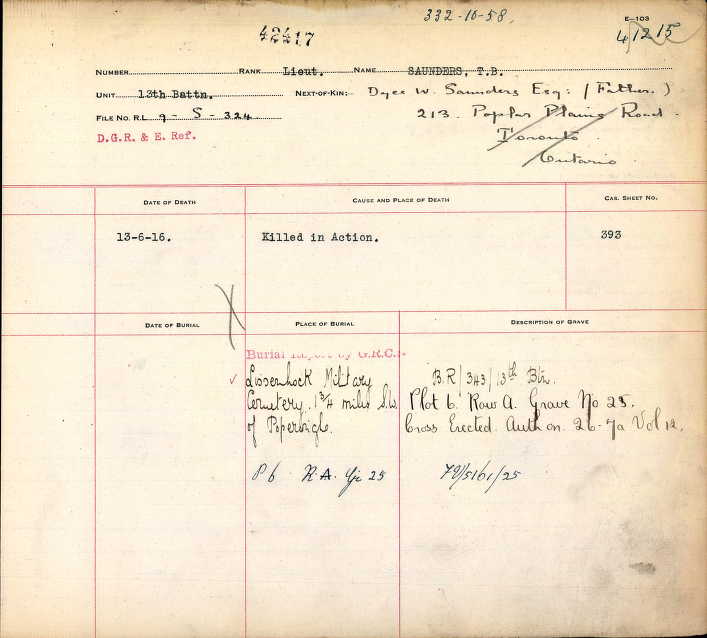 332-10-58.
42417
E-103
41215
NUMBER RANK Lieut. NAME SAUNDERS, T.B.
UNIT 13th Battn. NEXT-OF-KIN: Dyce W. Saunders Esq: (Father.)
FILE NO. R.L. 9 - S - 324 213. Poplar Plains Road.
D.G.R. & E. Ref. Toronto
Ontario
DATE OF DEATH CAUSE AND PLACE OF DEATH CAS. SHEET NO.
13-6-16. Killed in Action. 393
DATE OF BURIAL PLACE OF BURIAL DESCRIPTION OF GRAVE
Burial Report by G.R.C:-
Lissenhock Military B.R/343/13th Btn.
Cemetery 1 3/4 miles S.W. Plot 6. Row A. Grave No 25.
of Poperinghe. Cross Erected. Auth on. 26-7a Vol 12.
P6 R.A. Gr 25